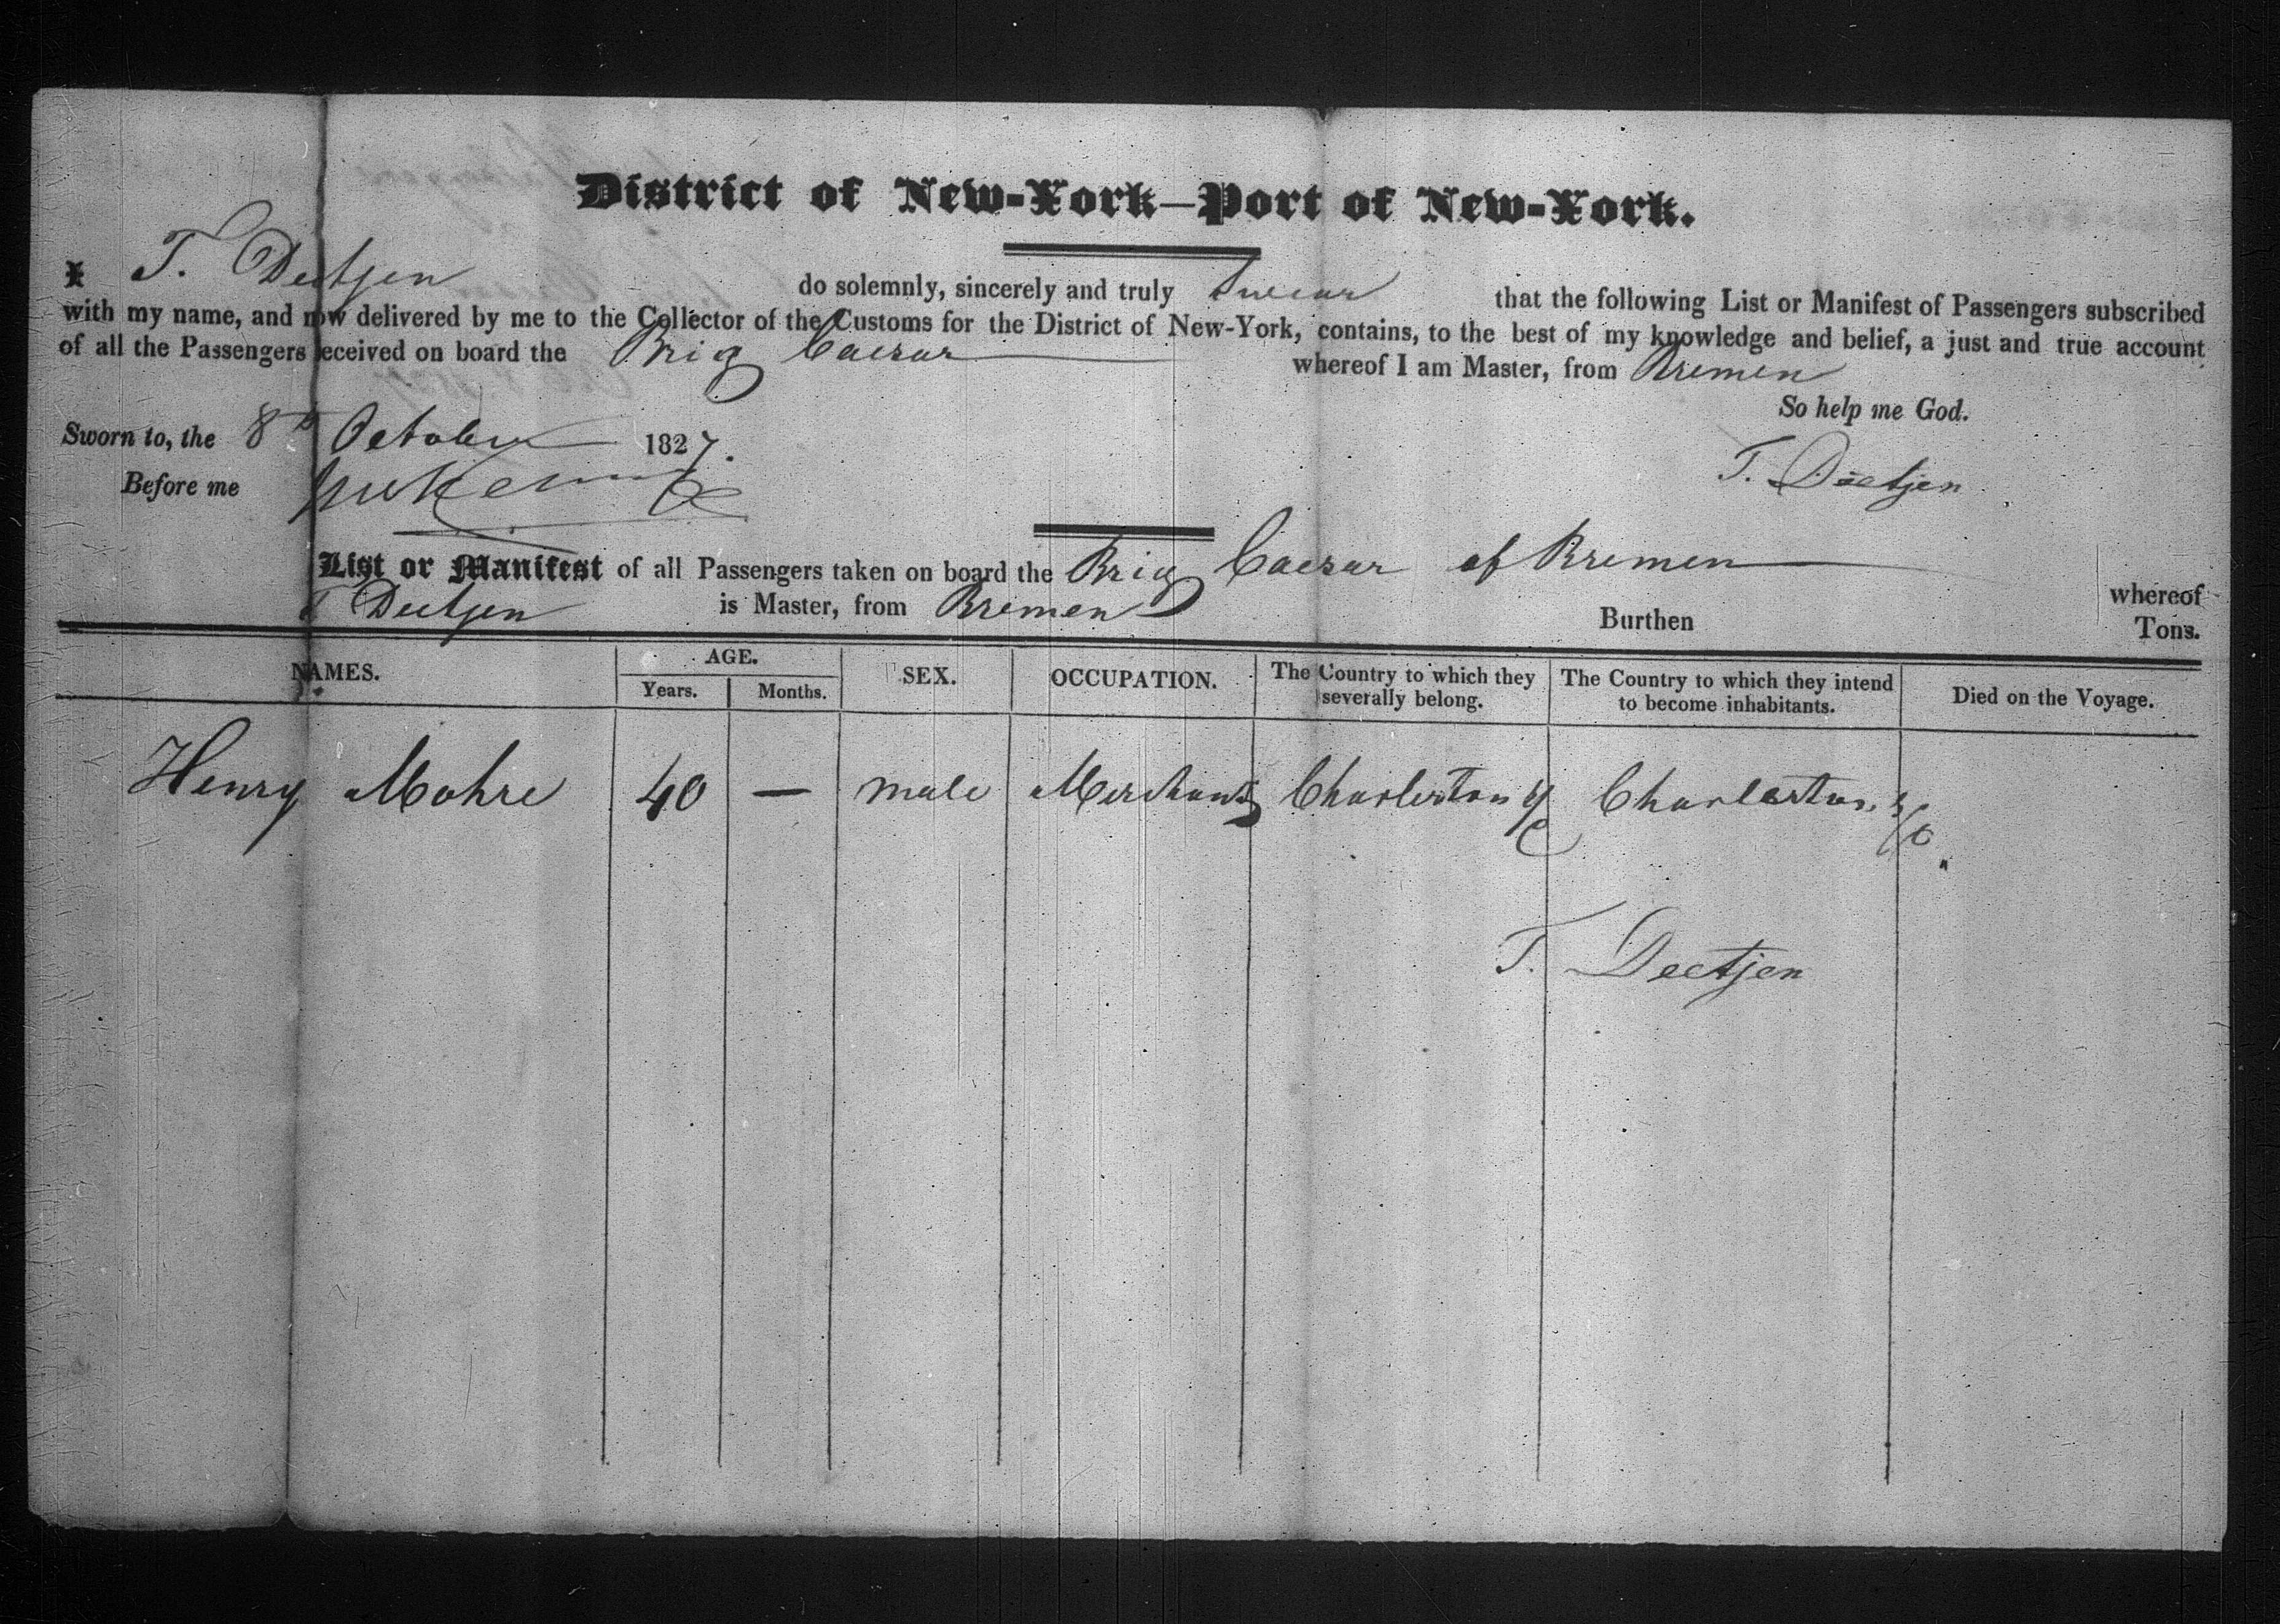 District of New-York—Port of New-York.
I T. Deetjen do solemnly, sincerely and truly swear that the following List or Manifest of Passengers subscribed
with my name, and now delivered by me to the Collector of the Customs for the District of New-York, contains, to the best of my knowledge and belief, a just and true account
of all the Passengers received on board the Brig Caesar whereof I am Master, from Bremen
So help me God.
Sworn to, the 8th October 1827.
T. Deetjen
Before me
List or Manifest of all Passengers taken on board the Brig Caesar of Bremen whereof
T Deetjen is Master, from Bremen Burthen Tons.
NAMES. AGE. SEX. OCCUPATION. The Country to which they severally belong. The Country to which they intend to become inhabitants. Died on the Voyage.
Years. Months.
Henry Mohre 40 — male Merchant Charleston S/C Charleston S/C
T. Deetjen